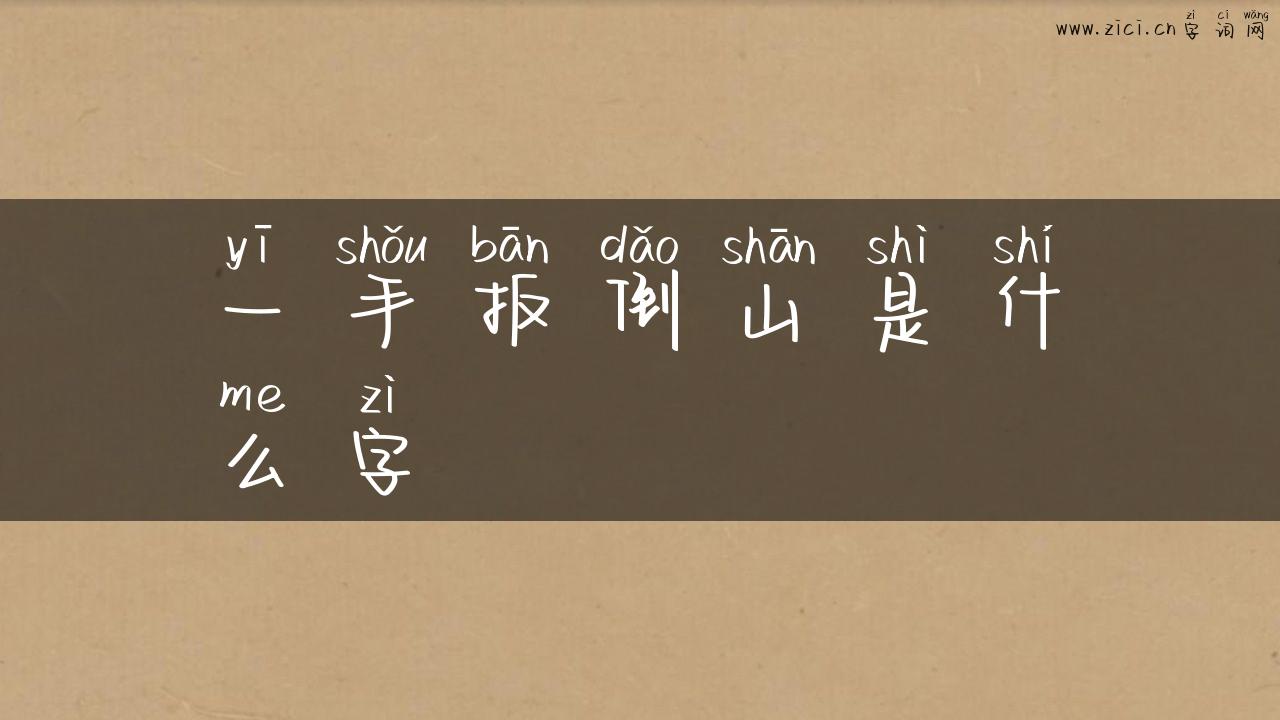 zì cí wǎng
www.zici.cn 字 词 网
yī shǒu bān dǎo shān shì shí
一 手 扳 倒 山 是 什
me zì
么 字